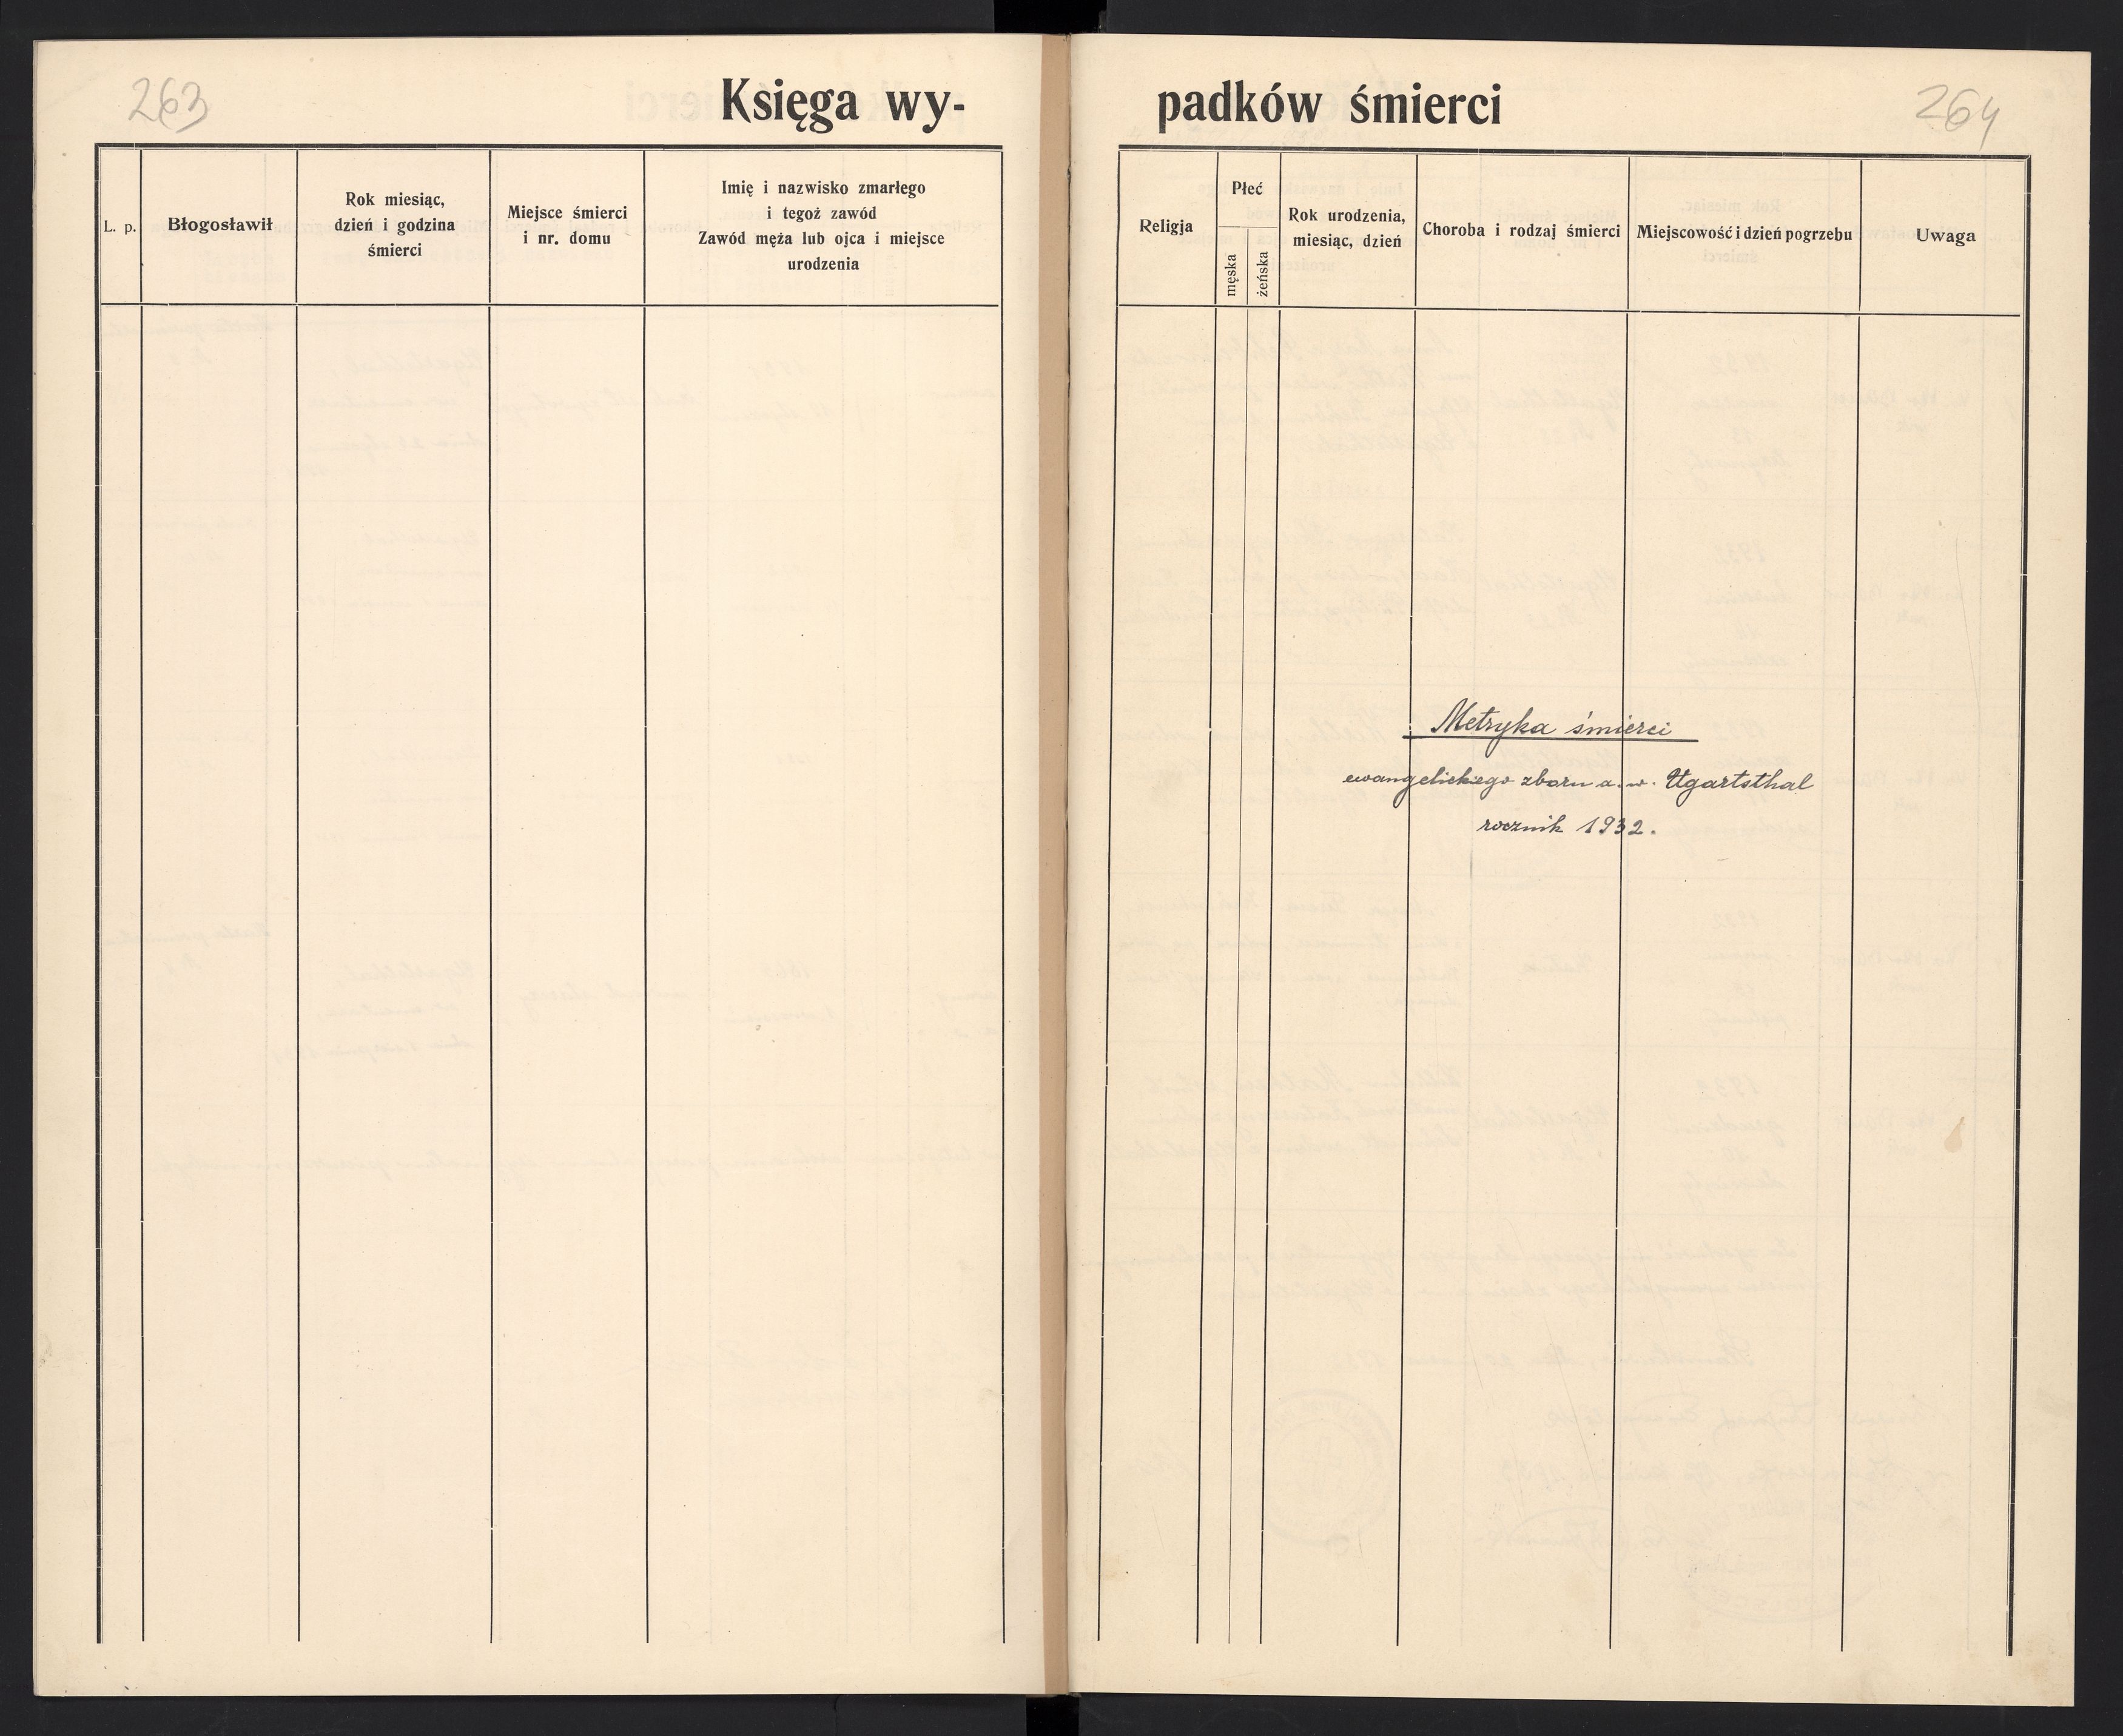 263
Księga wy-
L. p.
Błogosławił
Rok miesiąc,
dzień i godzina
śmierci
Miejsce śmierci
i nr. domu
Imię i nazwisko zmarłego
i tegoż zawód
Zawód męża lub ojca i miejsce
urodzenia
264
padków śmierci
Religja
Płeć
męska
żeńska
Rok urodzenia,
miesiąc, dzień
Choroba i rodzaj śmierci
Miejscowość i dzień pogrzebu
Uwaga
Metryka śmierci
ewangelickiego zboru a. w. Ugartsthal
rocznik 1932.